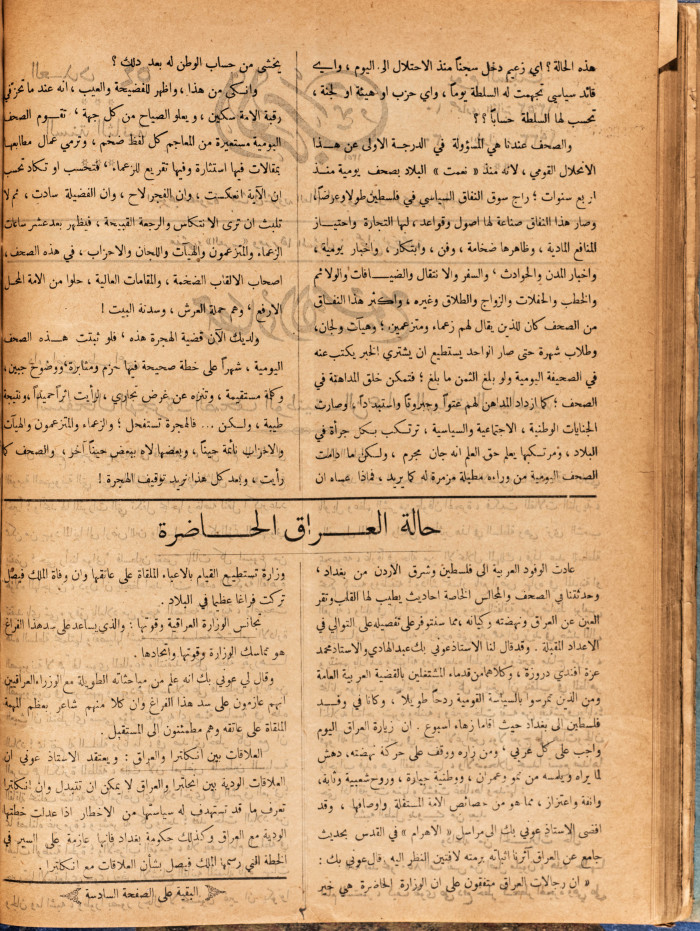 هذه الحالة ؟ اي زعيم دخل سجناً منذ الاحتلال الى اليوم ، واي
قائد سياسي تجهمت له السلطة يوماً ، واي حزب او هيئة او لجنة ،
تحسب لها السلطة حساباً ؟ ؟
والصحف عندنا هي المسؤولة في الدرجة الاولى عن هذا
الانحلال القومي ، لانه منذ « نعمت » البلاد بصحف يومية منذ
اربع سنوات ؛ راج سوق النفاق السياسي في فلسطين طولا وعرضا،
وصار هذا النفاق صناعة لها اصول وقواعد ، لبها التجارة واحتياز
المنافع المادية ، وظاهرها ضخامة ، وفن ، وابتكار ، واخبار يومية ،
واخبار المدن والحوادث ، والسفر والانتقال والضيافات والولائم
والخطب والحفلات والزواج والطلاق وغيره ، واكثر هذا النفاق
من الصحف كان للذين يقال لهم زعماء ومتزعمين ؛ وهيآت ولجان،
وطلاب شهرة حتى صار الواحد يستطيع ان يشتري الخبر يكتب عنه
في الصحيفة اليومية ولو بلغ الثمن ما بلغ ؛ فتمكن خلق المداهنة في
الصحف ؛ كما ازداد المداهن لهم عتواً وجبروتاً واستبداداً ، وصارت
الجنايات الوطنية ، الاجتماعية والسياسية ، ترتكب بكل جرأة في
البلاد ، ومرتكبها يعلم حق العلم انه جان مجرم ، ولكن ما دامت
الصحف اليومية من وراءه مطبلة مزمرة له كما يريد ، فماذا عساه ان
يخشى من حساب الوطن له بعد ذلك ؟
وانكى من هذا ، واظهر للفضيحة والعيب ، انه عند ما تحز في
رقبة الامة سكين ، ويعلو الصياح من كل جهة ، تقوم الصحف
اليومية مستعيرة من المعاجم كل لفظ ضخم ، وترمي عمال مطابعها
بمقالات فيها استثارة وفيها تقريع للزعماء، فتحسب او تكاد تحسب
ان الآية انعكست ، وان الفجر لاح ، وان الفضيلة سادت ، ثم لا
تلبث ان ترى الانتكاس والرجعة القبيحة ، فيظهر بعد عشر ساعات
الزعماء والمتزعمون والهيآت واللجان والاحزاب ، في هذه الصحف،
اصحاب الالقاب الضخمة ، والمقامات العالية ، حلوا من الامة المحل
الارفع ، وهم حملة العرش ، وسدنة البيت !
ولديك الآن قضية الهجرة هذه ، فلو ثبتت هذه الصحف
اليومية ، شهراً على خطة صحيحة فيها حزم ومثابرة، ووضوح جبين،
وكلمة مستقيمة ، وتنزه عن غرض تجاري ، لرأيت اثراً حميداً ، ونتيجة
طيبة ، ولكن ... فالهجرة تستفحل ؛ والزعماء والمتزعمون والهيآت
والاحزاب نائمة حيناً ، وبعضها لاهٍ ببعض حيناً آخر ، والصحف كما
رأيت ، وبعد كل هذا نريد توقيف الهجرة !
حالة العراق الحاضرة
عادت الوفود العربية الى فلسطين وشرق الاردن من بغداد ،
وحدثتنا في الصحف والمجالس الخاصة احاديث يطيب لها القلب وتقر
العين عن العراق ونهضته وكيانه ، مما سنتوفر على تفصيله على التوالي في
الاعداد المقبلة . وقد قال لنا الاستاذ عوني بك عبد الهادي والاستاذ محمد
عزة افندي دروزة ، وكلاهما من قدماء المشتغلين بالقضية العربية العامة
ومن الذين تمرسوا بالسياسة القومية ردحاً طويلاً ، وكانا في وفد
فلسطين الى بغداد حيث اقاما زهاء اسبوع . ان زيارة العراق اليوم
واجب على كل عربي ؛ ومن زاره ووقف على حركة نهضته ، دهش
لما يراه ويلمسه من نمو وعمران ، ووطنية جبارة ، وروح شعبية وثابة،
وانفة واعتزاز ، مما هو من خصائص الامة المستقلة واوصافها ، وقد
افضى الاستاذ عوني بك الى مراسل « الاهرام » في القدس بحديث
جامع عن العراق آثرنا اثباته برمته لافتين النظر اليه . قال عوني بك :
« ان رجالات العراق متفقون على ان الوزارة الحاضرة هي خير
وزارة تستطيع القيام بالاعباء الملقاة على عاتقها وان وفاة الملك فيصل
تركت فراغا عظيما في البلاد .
تجانس الوزارة العراقية وقوتها : والذي يساعد على سد هذا الفراغ
هو تماسك الوزارة وقوتها واتحادها .
وقال لي عوني بك انه علم من مباحثاته الطويلة مع الوزراء العراقيين
انهم عازمون على سد هذا الفراغ وان كلا منهم شاعر بعظم المهمة
الملقاة على عاتقه وهم مطمئنون الى المستقبل .
العلاقات بين انكلترا والعراق : ويعتقد الاستاذ عوني ان
العلاقات الودية بين انجلترا والعراق لا يمكن ان تتبدل وان انكلترا
تعرف ما قد تستهدف له سياستها من الاخطار اذا عدلت خطتها
الودية مع العراق وكذلك حكومة بغداد فانها عازمة على السير في
الخطة التي رسمها الملك فيصل بشأن العلاقات مع انكلترا .
البقية على الصفحة السادسة
٢